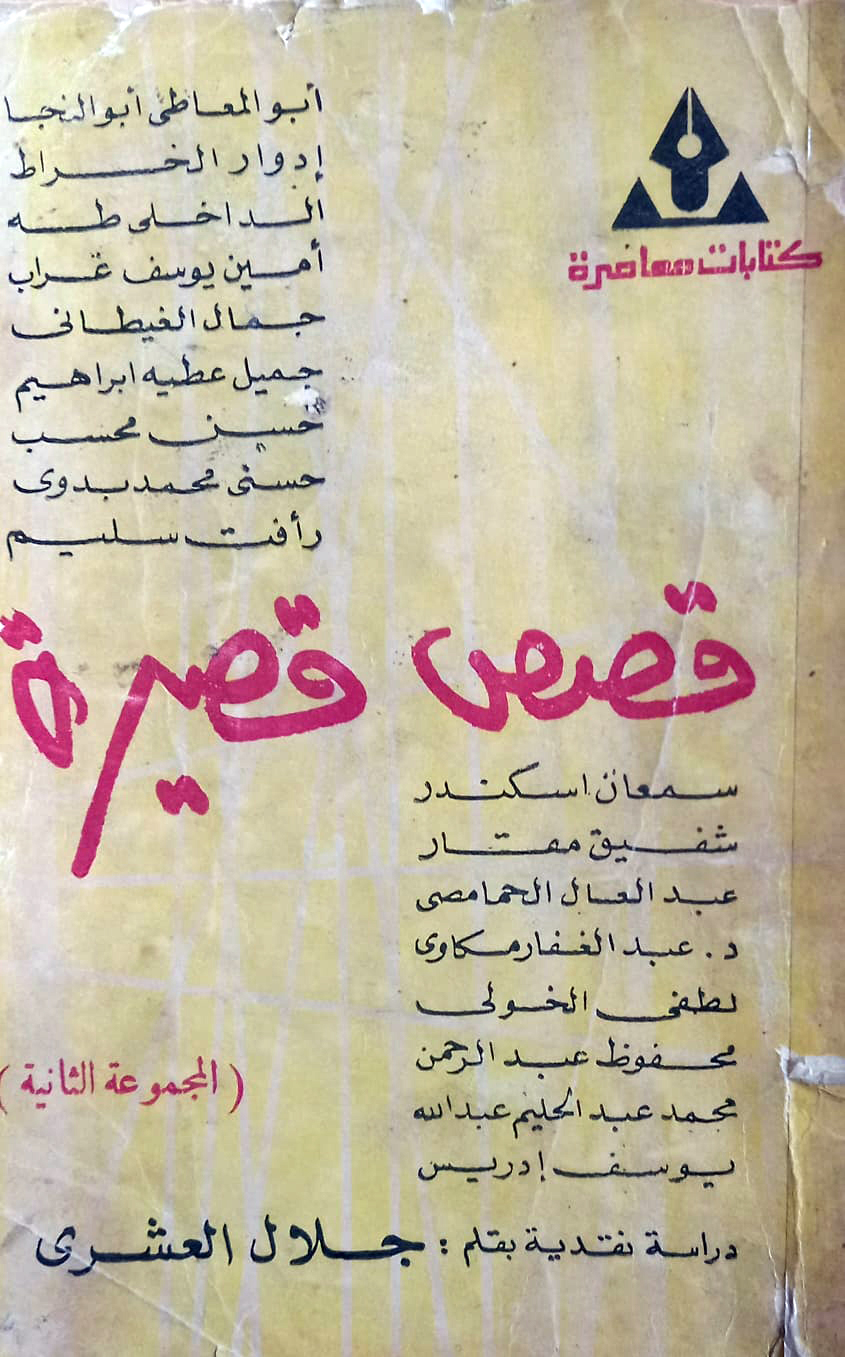 كتابات معاصرة
أبو المعاطى أبو النجا
إدوار الخراط
الداخلى طه
أمين يوسف غراب
جمال الغيطانى
جميل عطيه ابراهيم
حسن محسب
حسنى محمد بدوى
رأفت سليم
قصص قصيرة
سمعان اسكندر
شفيق مقار
عبد العال الحمامصى
د. عبد الغفار مكاوى
لطفى الخولى
محفوظ عبد الرحمن
محمد عبد الحليم عبد الله
يوسف إدريس
( المجموعة الثانية )
دراسة نقدية بقلم : جلال العشرى